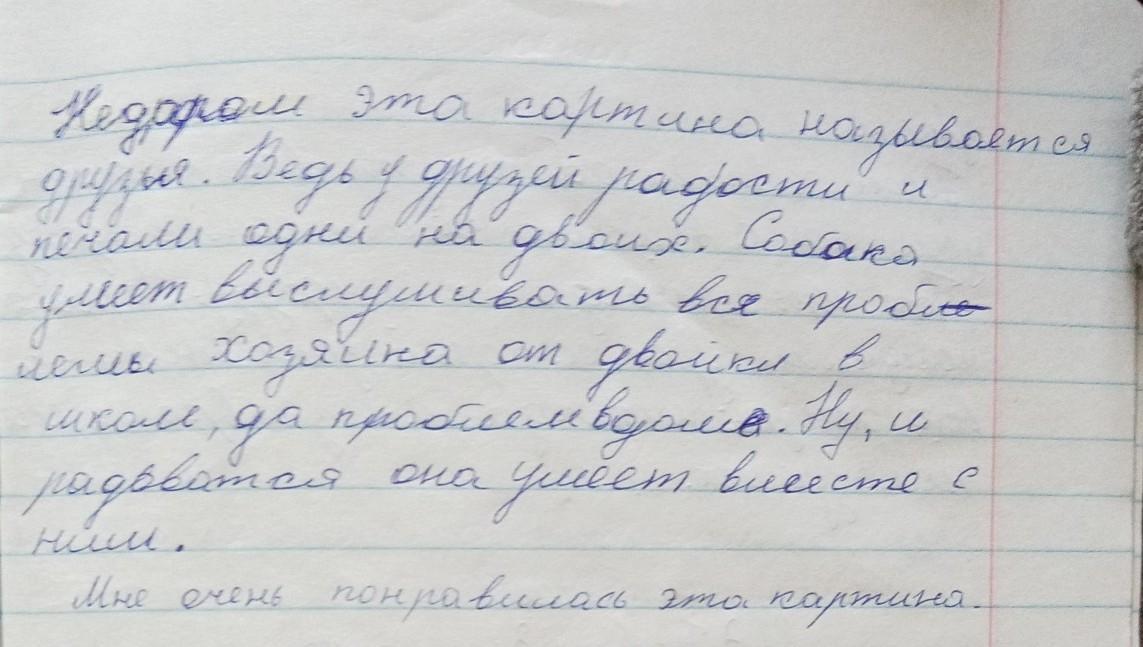 Недаром эта картина называется
друзья. Ведь у друзей радости и
печали одни на двоих. Собака
умеет выслушивать все проб
лемы хозяина от двойки в
школе, да проблем в доме. Ну, и
радоватся она умеет вместе с
ним.
Мне очень понравилась эта картина.